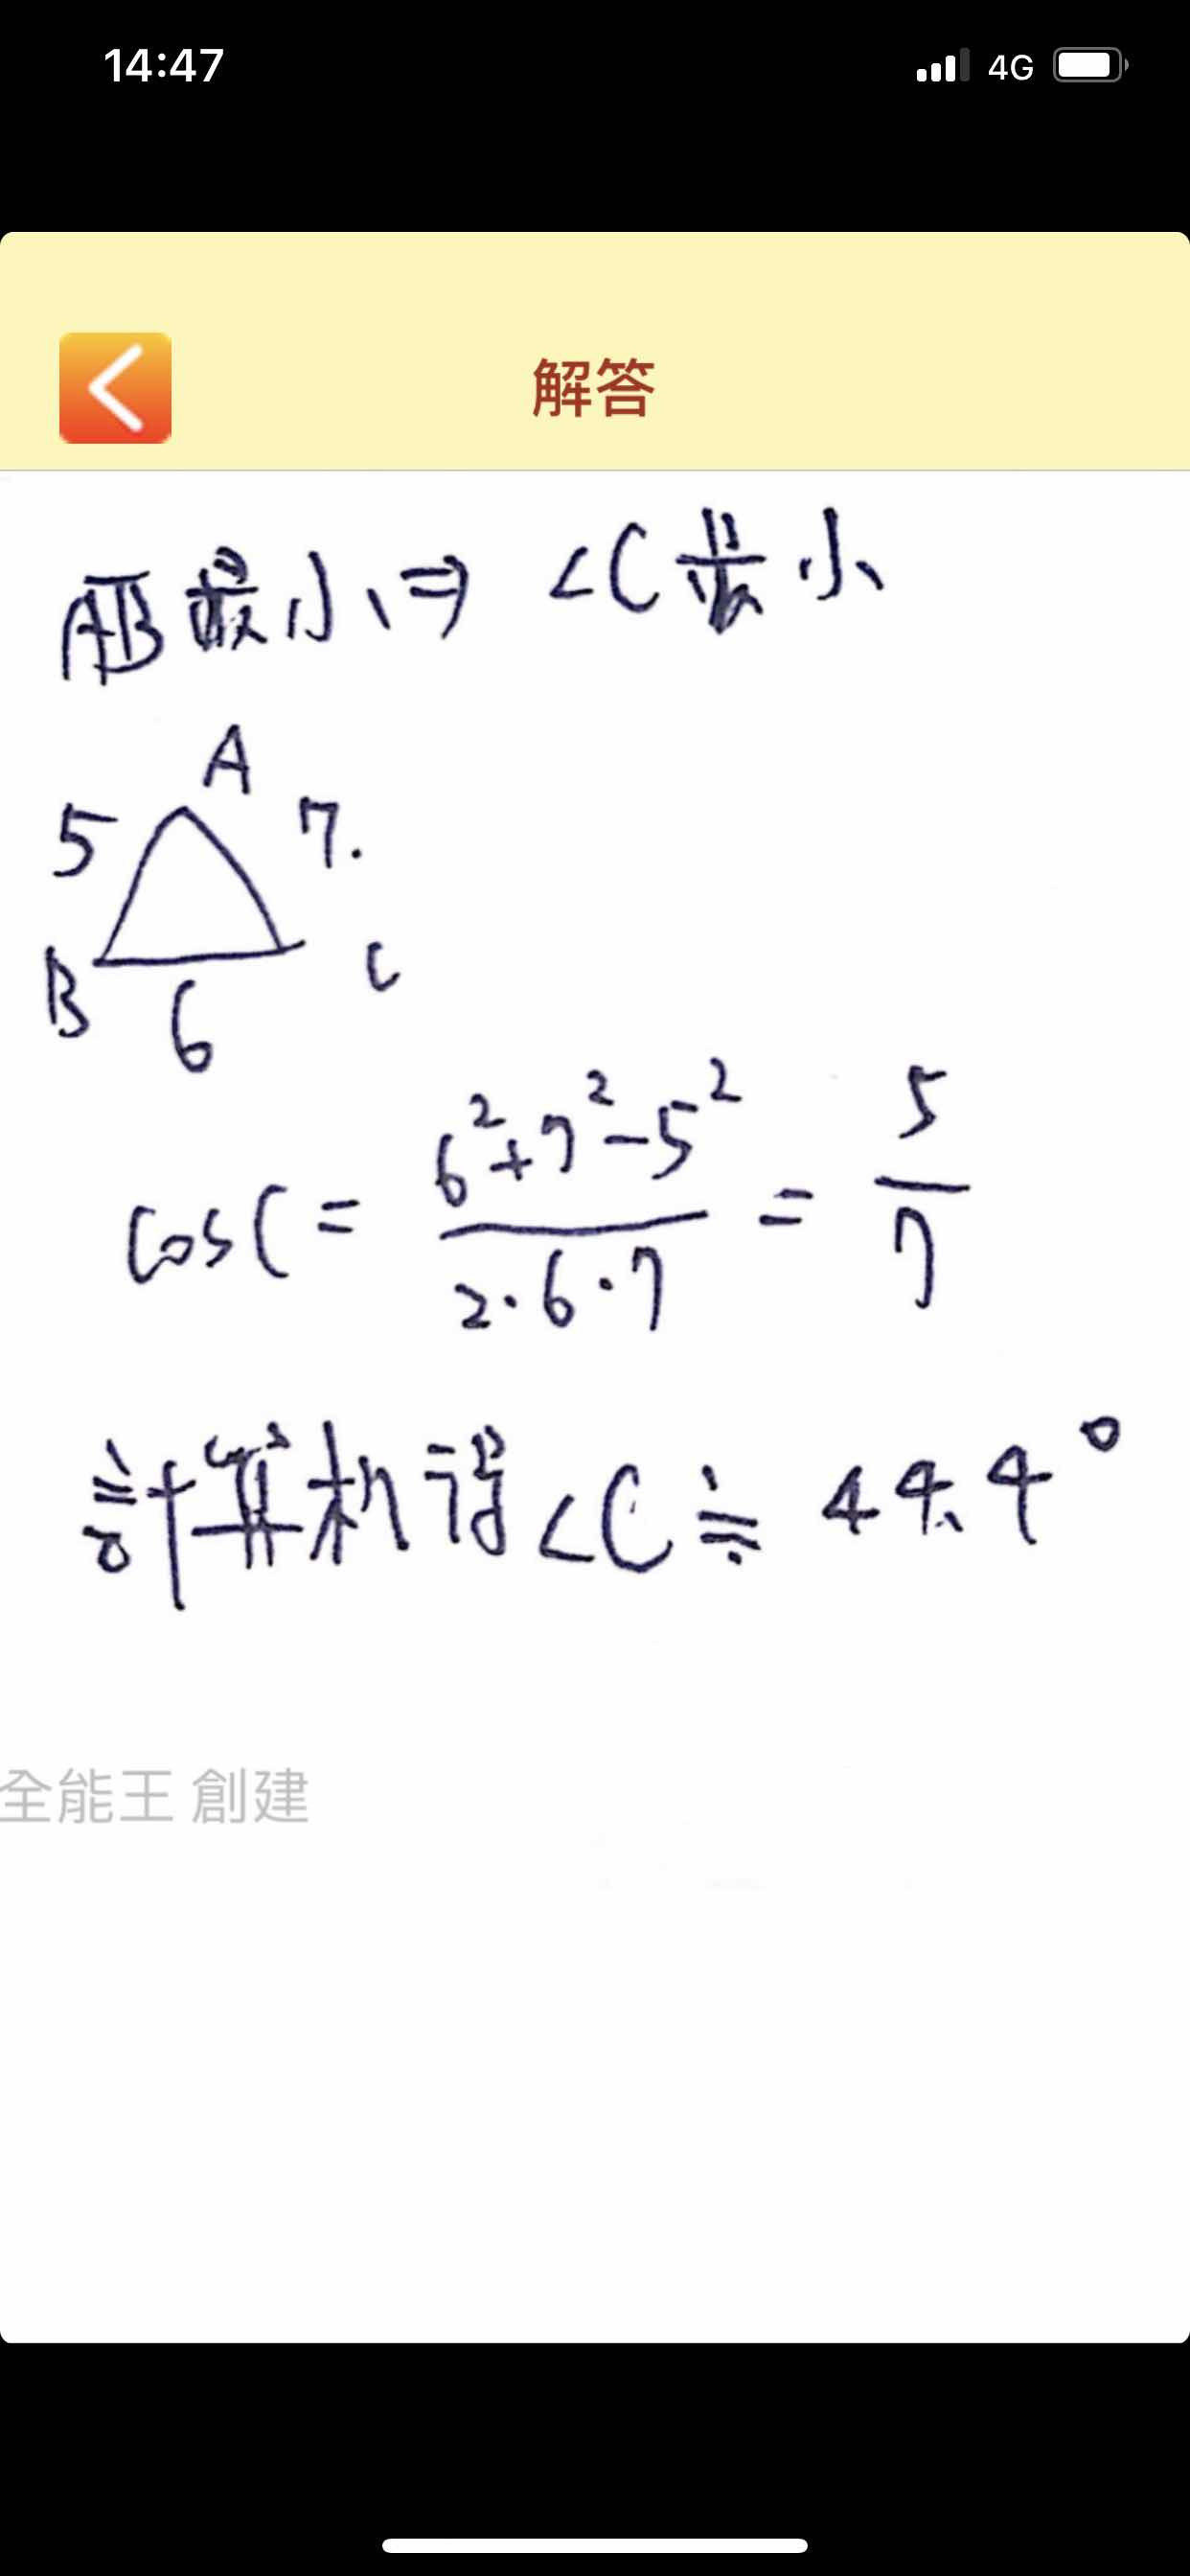 14:47 4G
解答
AB最小 ⇒ ∠C最小
A
5 7.
B C
6
cosC = (6²+7²-5²)/(2·6·7) = 5/7
計算机得∠C≒44.4°
全能王 創建